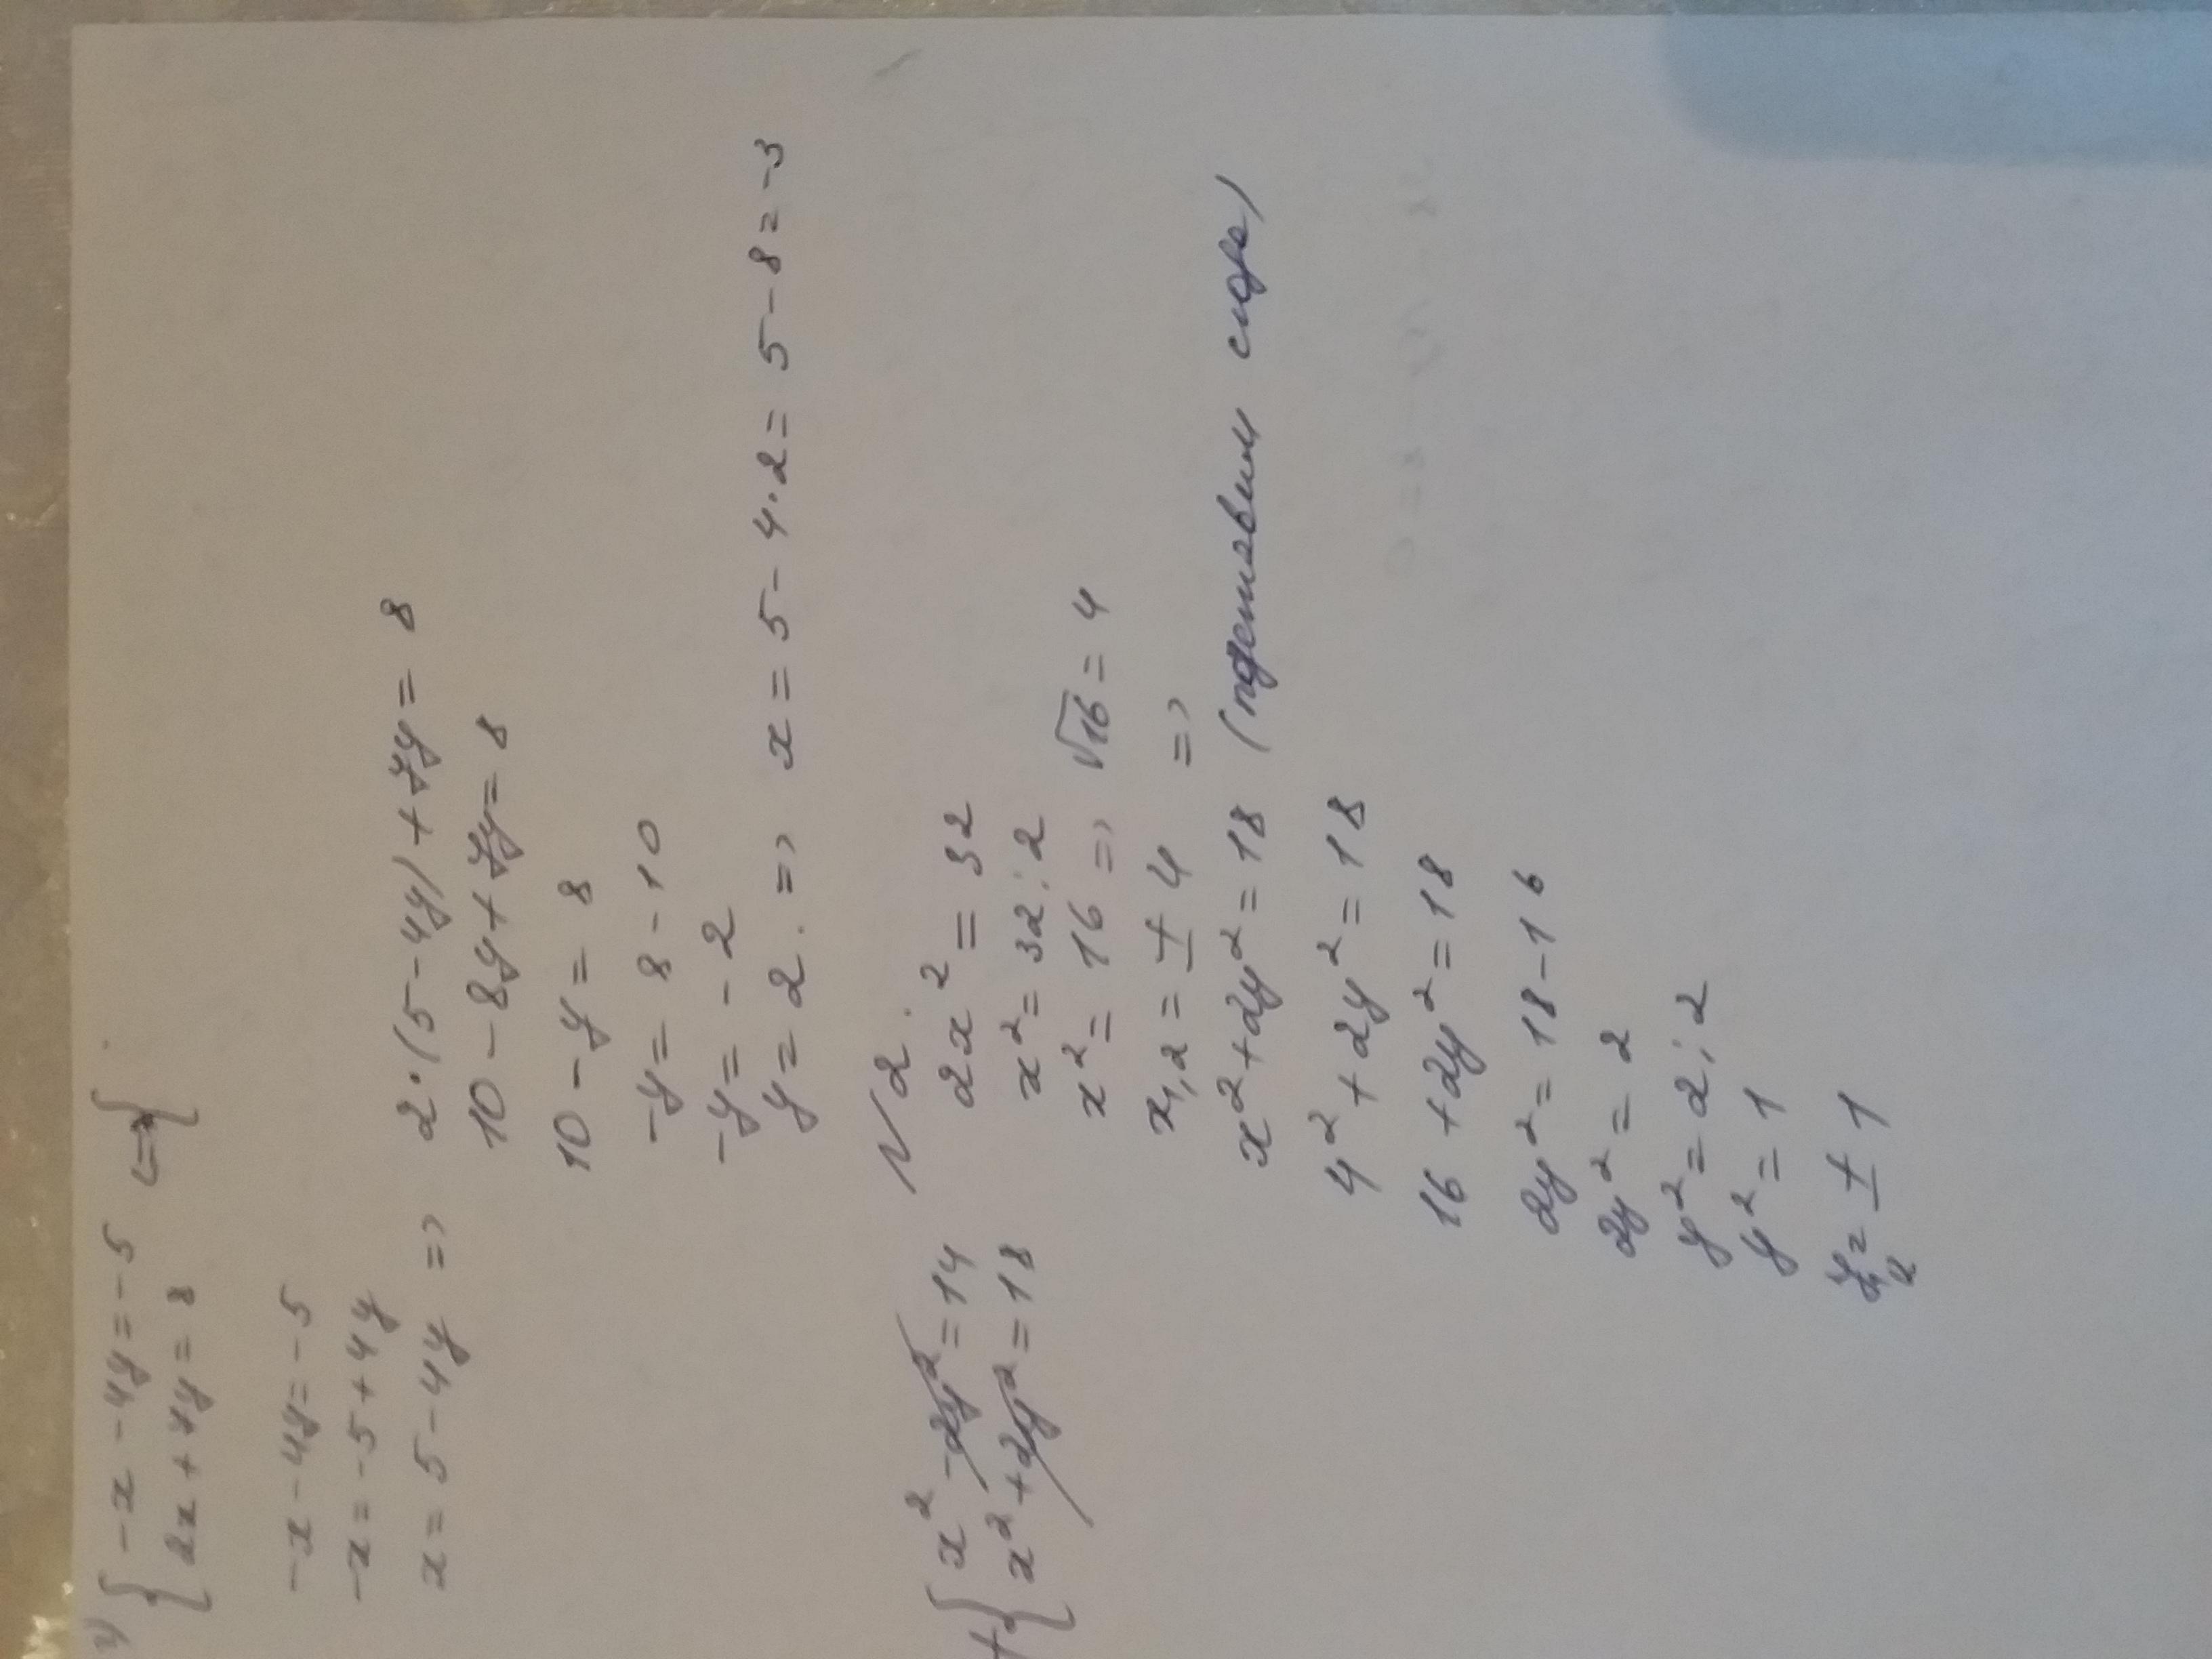 1) { -x - 4y = -5 <=> {
2x + 7y = 8
-x - 4y = -5
-x = -5 + 4y
x = 5 - 4y => 2·(5 - 4y) + 7y = 8
10 - 8y + 7y = 8
10 - y = 8
-y = 8 - 10
-y = -2
y = 2. => x = 5 - 4·2 = 5 - 8 = -3
N 2.
+ { x² - 2y² = 14
x² + 2y² = 18
2x² = 32
x² = 32 : 2
x² = 16 => √16 = 4
x1,2 = ± 4 =>
x² + 2y² = 18 (подставим сюда)
4² + 2y² = 18
16 + 2y² = 18
2y² = 18 - 16
2y² = 2
y² = 2 : 2
y² = 1
y1,2 = ± 1